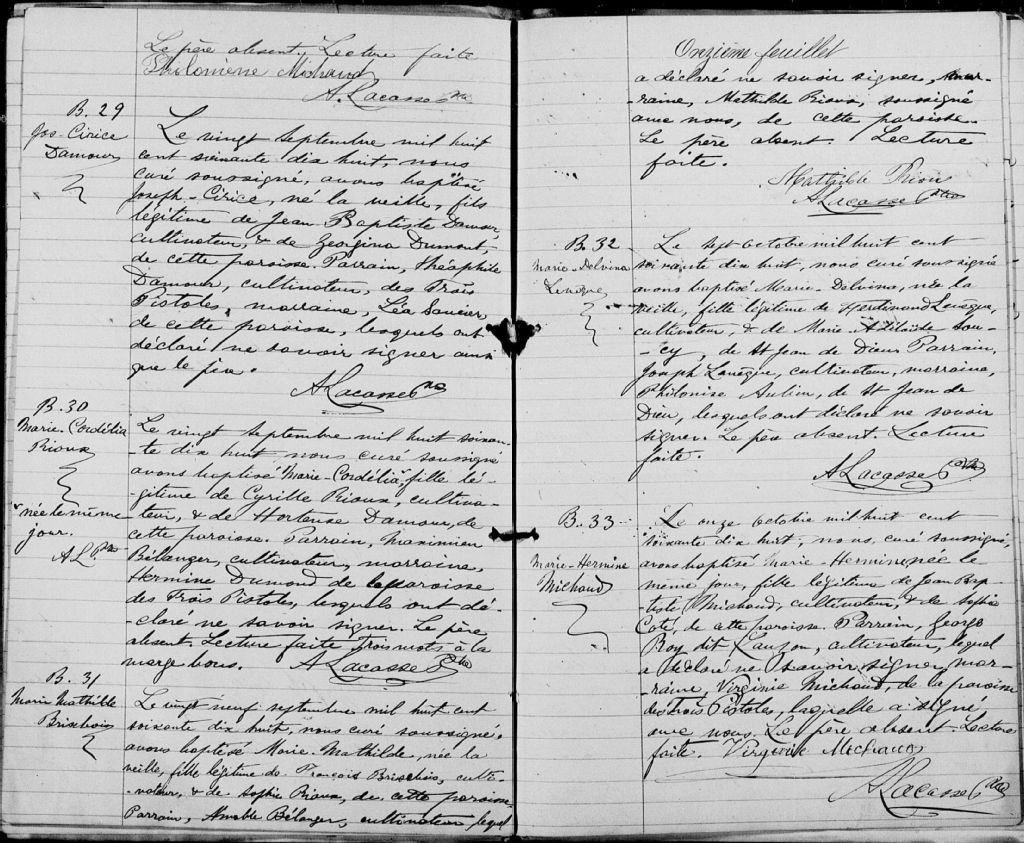 Le père absent. Lecture faite
Philomène Michaud
A. Lacasse Ptre
B. 29
Jos-Cirice
Damour
Le vingt septembre mil huit
cent soixante dix huit, nous
curé soussigné, avons baptisé
Joseph-Cirice, né la veille, fils
légitime de Jean Baptiste Damour,
cultivateur, & de Georgina Dumont,
de cette paroisse. Parrain, Théophile
Damour, cultivateur, des Trois
Pistoles, marraine, Léa Saucier,
de cette paroisse, lesquels ont
déclaré ne savoir signer ainsi
que le père.
A Lacasse Ptre
B. 30
Marie-Cordélia
Rioux
née le même
jour.
A L Ptre
Le vingt septembre mil huit soixan-
te dix huit nous curé soussigné
avons baptisé Marie-Cordélia, fille lé-
gitime de Cyrille Rioux, cultiva-
teur, & de Hortense Damour, de
cette paroisse. Parrain, Maximien
Bélanger, cultivateur, marraine,
Hermine Dumond de la paroisse
des Trois Pistoles, lesquels ont dé-
claré ne savoir signer. Le père
absent. Lecture faite Trois mots à la
marge bons. A Lacasse Ptre
B. 31
Marie Mathilde
Brisebois
Le vingt neuf septembre mil huit cent
soixante dix huit, nous curé soussigné,
avons baptisé Marie-Mathilde, née la
veille, fille légitime de François Brisebois, culti-
-vateur, & de Sophie Rioux, de cette paroisse.
Parrain, Amable Bélanger, cultivateur lequel
Onzième feuillet
a déclaré ne savoir signer, mar-
-raine, Mathilde Rioux, soussigné
avec nous, de cette paroisse.
Le père absent. Lecture
faite.
Mathilde Rioux
A Lacasse Ptre
B. 32
Marie-Delvina
Levêque
Le sept octobre mil huit cent
soixante dix huit, nous curé soussigné
avons baptisé Marie-Delvina, née la
veille, fille légitime de Ferdinand Levêque,
cultivateur, & de Marie-Adélaïde Sou-
-cy, de St Jean de Dieu Parrain,
Joseph Levêque, cultivateur, marraine,
Philonise Aubin, de St Jean de
Dieu, lesquels ont déclaré ne savoir
signer. Le père absent. Lecture
faite.
A Lacasse Ptre
B. 33
Marie-Hermine
Michaud
Le onze octobre mil huit cent
soixante dix huit, nous, curé soussigné,
avons baptisé Marie-Hermine, née le
même jour, fille légitime de Jean Bap-
tiste Michaud, cultivateur, & de Sophie
Coté, de cette paroisse. Parrain, George
Roy dit Lauzon, cultivateur, lequel
a déclaré ne savoir signer, mar-
raine, Virginie Michaud, de la paroisse
des Trois Pistoles, laquelle a signé
avec nous. Le père absent. Lecture
faite. Virginie Michaud
A Lacasse Ptre